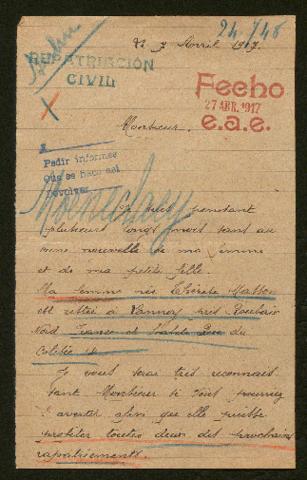 24.748
Le 7 Avril 1917.
REPATRIACIÓN
CIVIL
Fecho
27 ABR. 1917
e.a.e.
X
Monsieur.
Pedir informes
que se hace así
devolver
suis pendant
plusieurs longs mois sans au
cune nouvelle de ma femme
et de ma petite fille.
Ma femme née Thérèse Masson
est restée à Lannoy près Roubaix
Nord France et habite Rue du
Colisée
Je vous serai très reconnais
sant Monsieur si vous pourriez
l'avertir afin que elle puisse
profiter toutes deux des prochains
rapatriements.